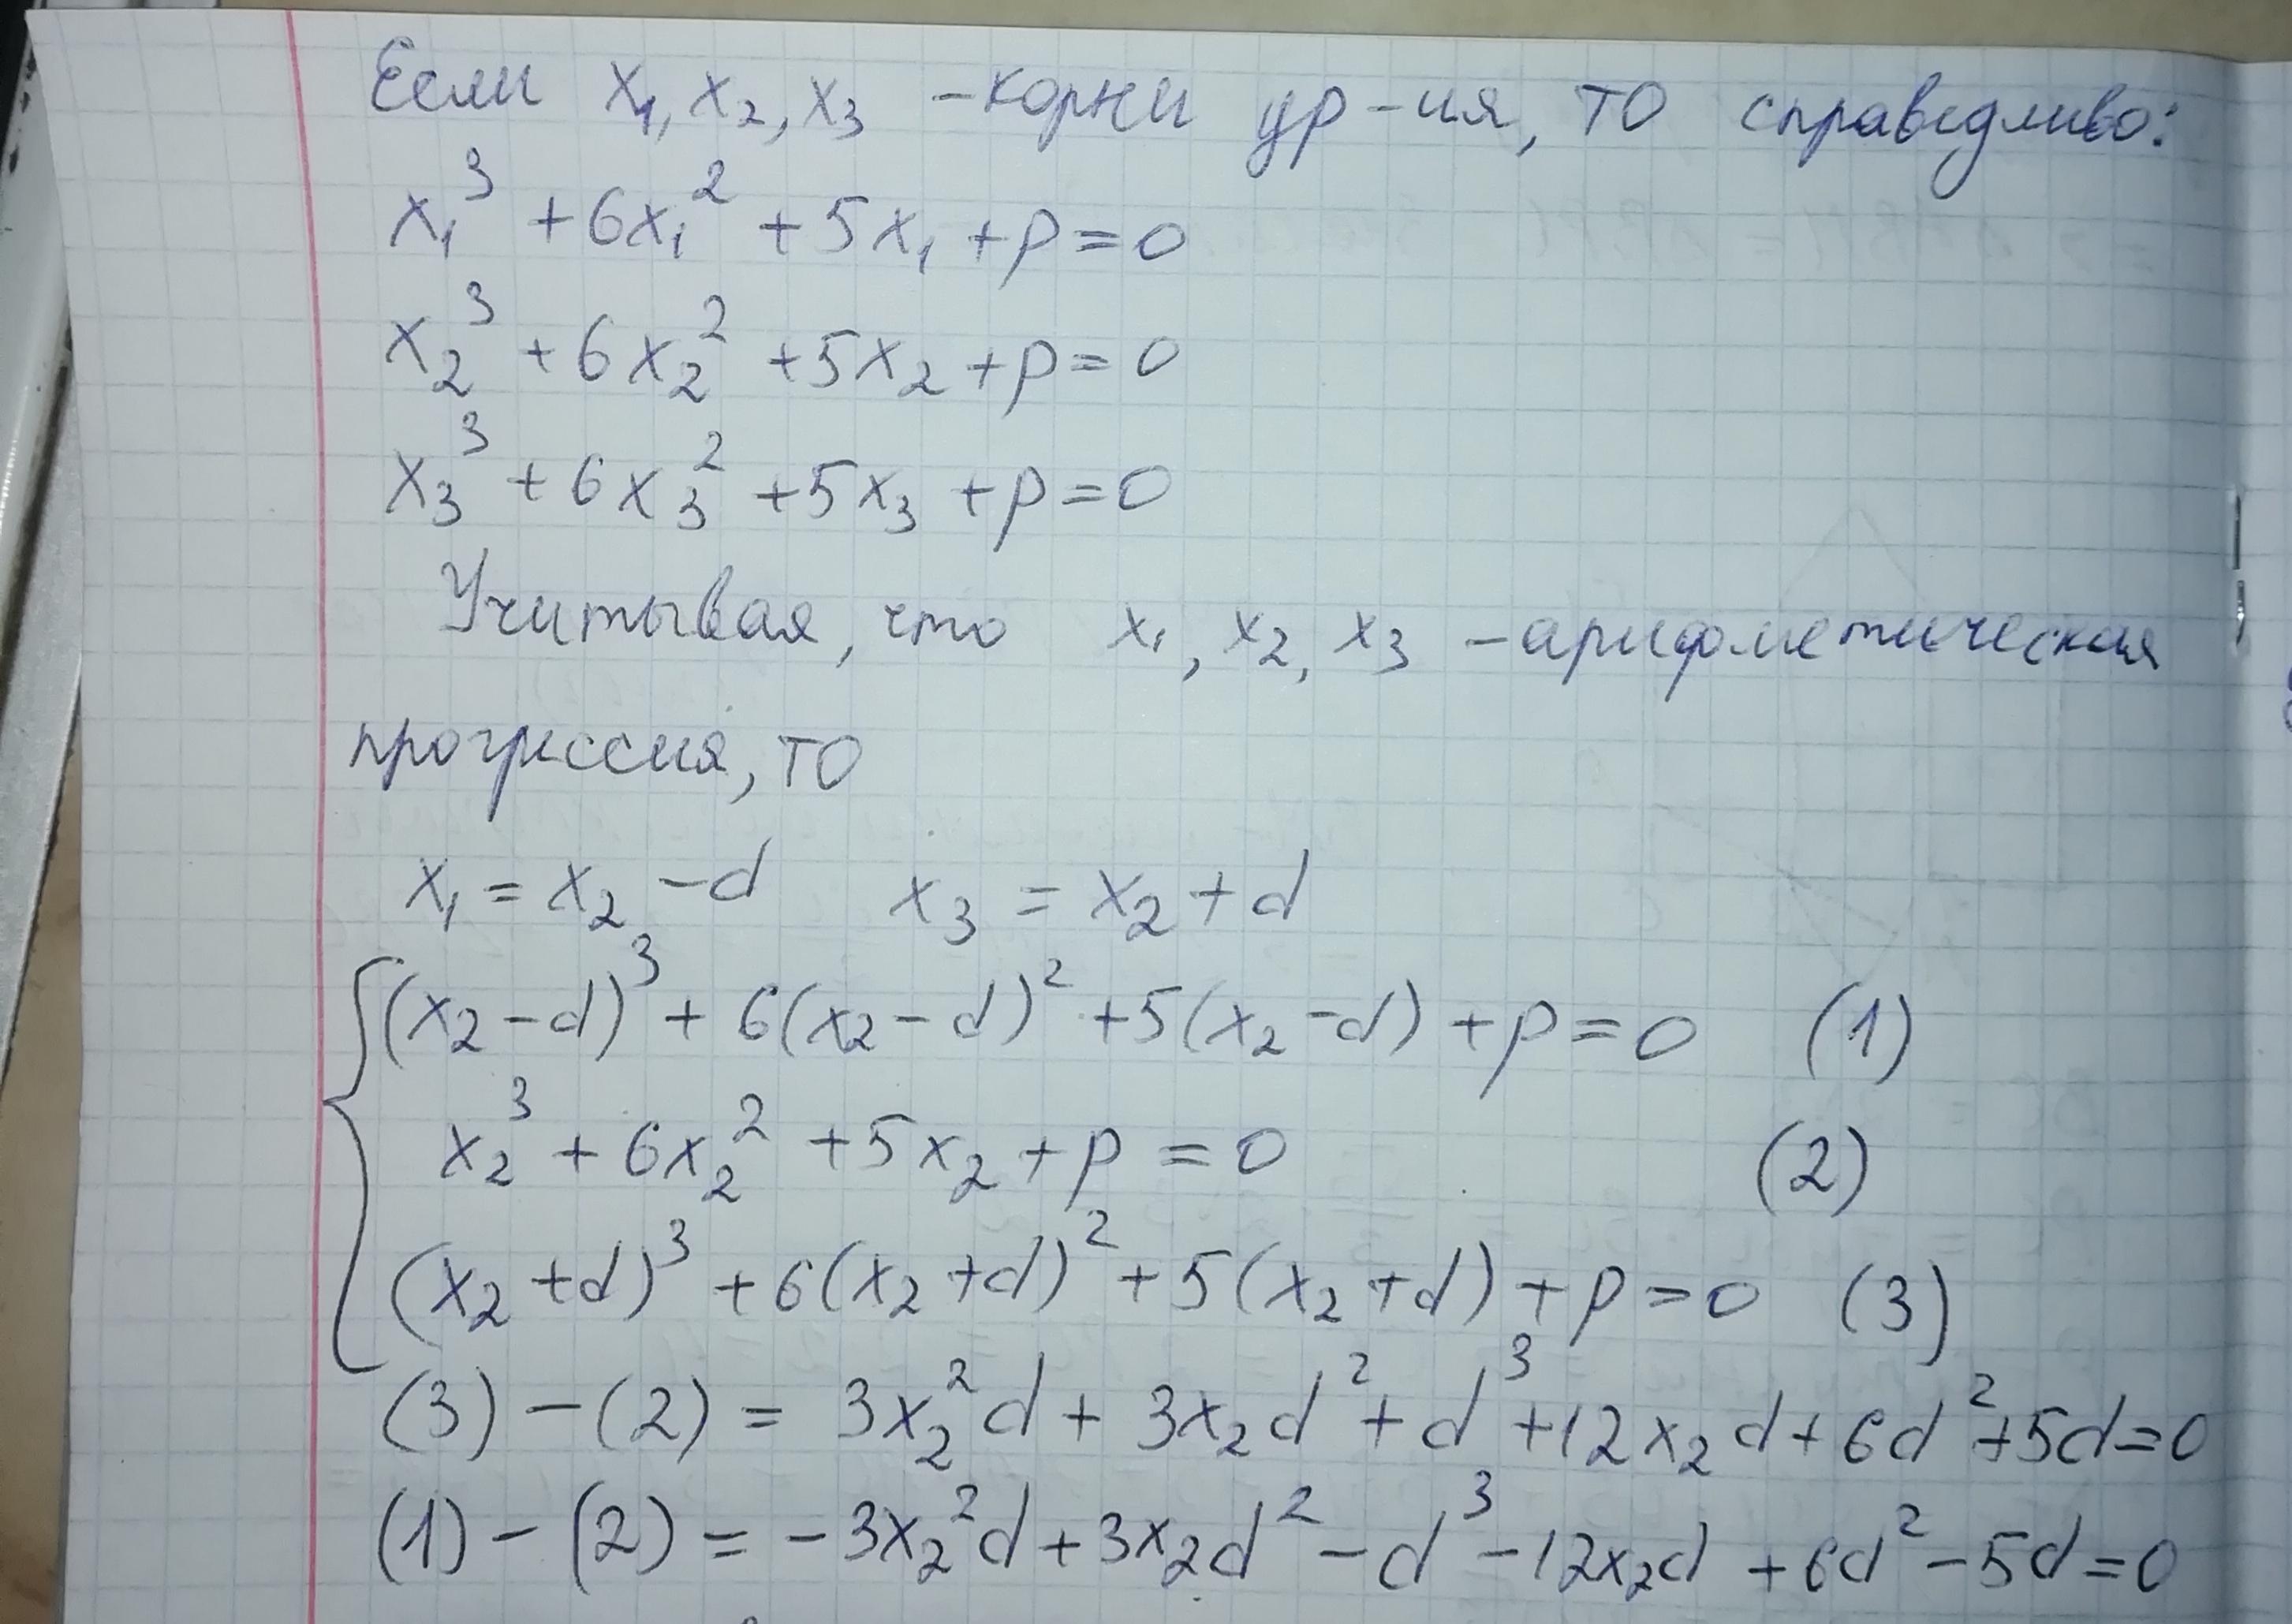 Если x₁, x₂, x₃ – корни ур-ия, то справедливо:
x₁³ + 6x₁² + 5x₁ + p = 0
x₂³ + 6x₂² + 5x₂ + p = 0
x₃³ + 6x₃² + 5x₃ + p = 0
Учитывая, что x₁, x₂, x₃ – арифметическая
прогрессия, то
x₁ = x₂ – d x₃ = x₂ + d
(x₂ – d)³ + 6(x₂ – d)² + 5(x₂ – d) + p = 0 (1)
x₂³ + 6x₂² + 5x₂ + p = 0 (2)
(x₂ + d)³ + 6(x₂ + d)² + 5(x₂ + d) + p = 0 (3)
(3) – (2) = 3x₂²d + 3x₂d² + d³ + 12x₂d + 6d² + 5d = 0
(1) – (2) = – 3x₂²d + 3x₂d² – d³ – 12x₂d + 6d² – 5d = 0